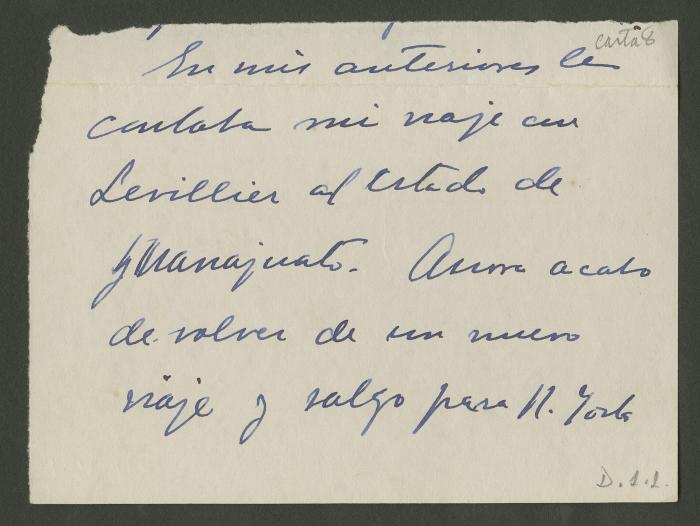 carta 8
En mis anteriores le
contaba mi viaje con
Levillier al Estado de
Guanajuato. Ahora acabo
de volver de un nuevo
viaje y salgo para N. York
D.1.2.